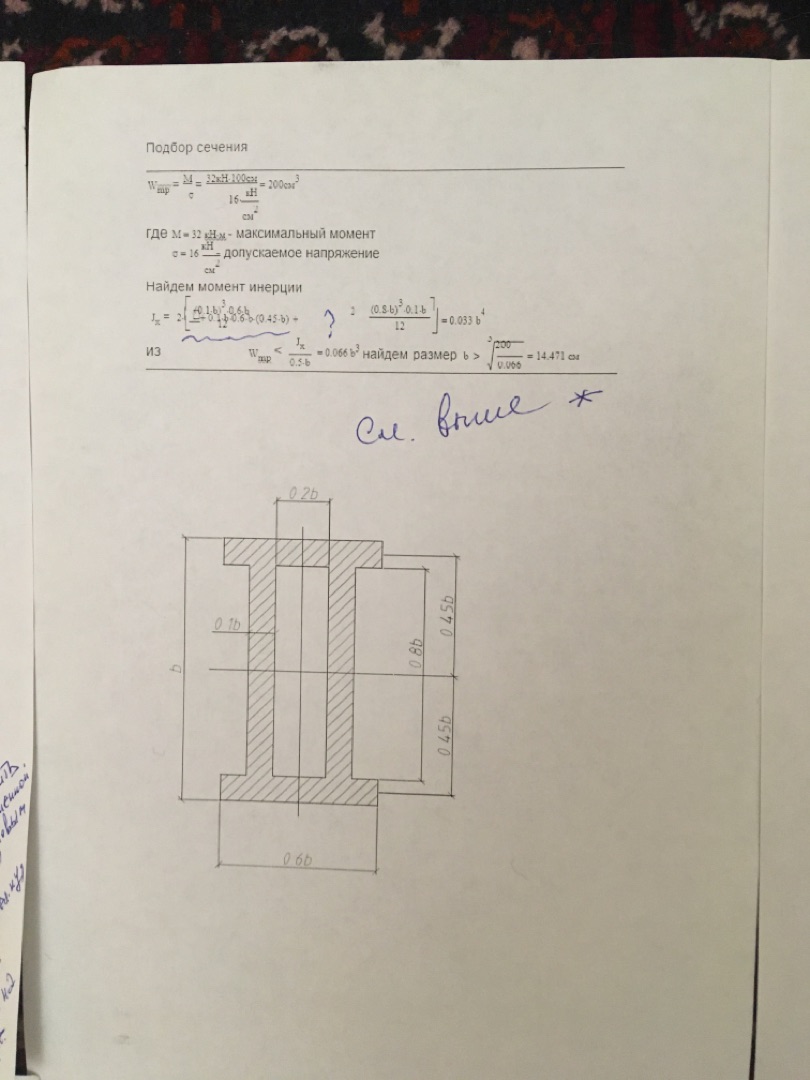 Подбор сечения
Wтр = M/σ = 32кН·100см / 16 кН/см² = 200см³
где M = 32 кН·м - максимальный момент
σ = 16 кН/см² - допускаемое напряжение
Найдем момент инерции
Jx = 2·[(0.1·b)³·0.6·b/12 + 0.1·b·0.6·b·(0.45·b)² + (0.8·b)³·0.1·b/12] = 0.033 b⁴
?
из Wтр < Jx/0.5·b = 0.066 b³ найдем размер b > ³√200/0.066 = 14.471 см
См. выше *
0.2b
0.1b
b
0.8b
0.45b
0.45b
0.6b